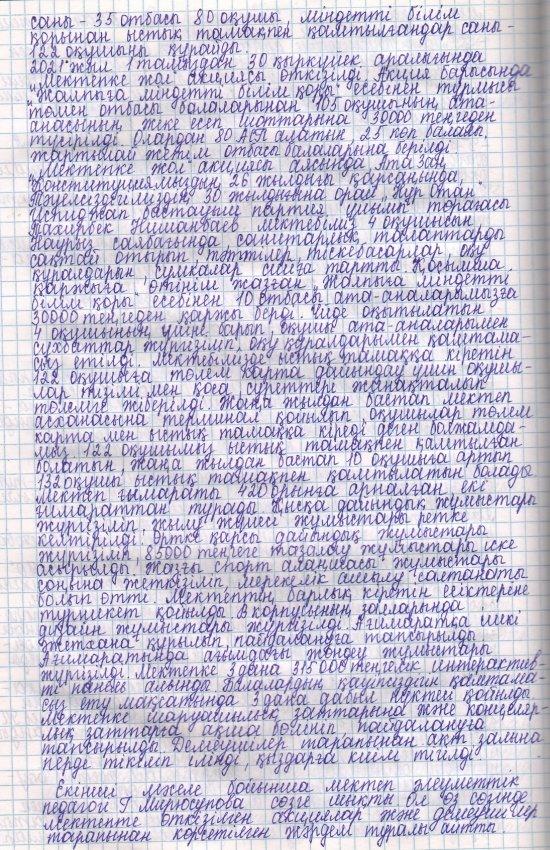 саны - 35 отбасы 80 оқушы, міндетті білім
қорынан ыстық тамақпен қамтылғандар саны -
122 оқушыны құрайды.
2021 жыл 1 тамыздан 30 қыркүйек аралығында
„Мектепке жол" акциясы өткізілді. Акция барысында
„Жалпыға міндетті білім қоры" есебінен тұрмысы
төмен отбасы балаларынан 105 оқушының ата-
анасының жеке есеп шоттарына 30000 теңгеден
түсірілді. Олардан 80 АСП алатын, 25 көп балалы,
жартылай жетім отбасы балаларына берілді.
„Мектепке жол" акциясы аясында, Ата Заң
Конституциямыздың 26 жылдығы қарсаңында,
Тәуелсіздігіміздің 30 жылдығына орай „Нұр Отан"
бастауыш партия ұйымы төрағасы
Нишанбаев мектебіміз 4 оқушысын
Наурыз саябағында, санитарлық талаптарды
сақтай отырып, тәттілер, тіскебасарлар, оқу
құралдарын, сумкалар сыйға тартты. Қосымша
қаржыға өтініш жазған „Жалпыға міндетті
білім қоры" есебінен 10 отбасы ата-аналарымызға
30000 теңгеден қаржы берді. Үйде оқытылатын
4 оқушының үйіне барып, оқушы ата-аналарымен
сұхбаттар жүргізіліп, оқу құралдарымен қамтама-
сыз етілді. Мектебімізде ыстық тамаққа кіретін
122 оқушыға төлем карта дайындау үшін оқушы-
лар тізімі мен қоса, суреттері жинақталып
төлемге жіберілді. Жаңа жылдан бастап мектеп
асханасына терминал қойылып, оқушылар төлем
карта мен ыстық тамаққа кіреді деген болжамда-
мыз 122 оқушымыз ыстық тамақпен қамтылған
болатын, жаңа жылдан бастап 10 оқушыға артып
132 оқушы ыстық тамақпен қамтылатын болады.
Мектеп ғимараты 420 орынға арналған екі
ғимараттан тұрады. Қысқа дайындық жұмыстары
жүргізіліп, жылу жүйесі жұмыстары ретке
келтірілді. Өртке қарсы дайындық жұмыстары
жүргізіліп, 85000 теңгеге тазалау жұмыстары іске
асырылды. Жазғы спорт алаңшасы жұмыстары
соңына жеткізіліп, мерекелік ашылу салтанаты
болып өтті. Мектептің барлық кіретін есіктеріне
турникет қойылды. В корпусының залларында
дизайн жұмыстары жүргізілді. А ғимаратқа ішкі
әжетхана құрылып, пайдалануға тапсырылды.
А ғимаратында ағымдағы жөндеу жұмыстары
жүргізілді. Мектепке 3 дана 315000 теңгелік интерактив-
ті панель алынды. Балалардың қауіпсіздігін қамтама-
сыз ету мақсатында 3 дана дабыл нүктесі қойылды.
Мектепке шаруашылық заттарына және концеляр-
лық заттарға ақша бөлініп, пайдалануға
тапсырылды. Демеушілер тарапынан акт залына
перде тікеліп ілінді, қыздарға киім тігілді.
Екінші мәселе бойынша мектеп әлеуметтік
педагогі Г. Мирюсупова сөзге шықты ол өз сөзінде
мектепте өткізілген акциялар және демеушілер
тарапынан көрсетілген жәрдем туралы айтты.